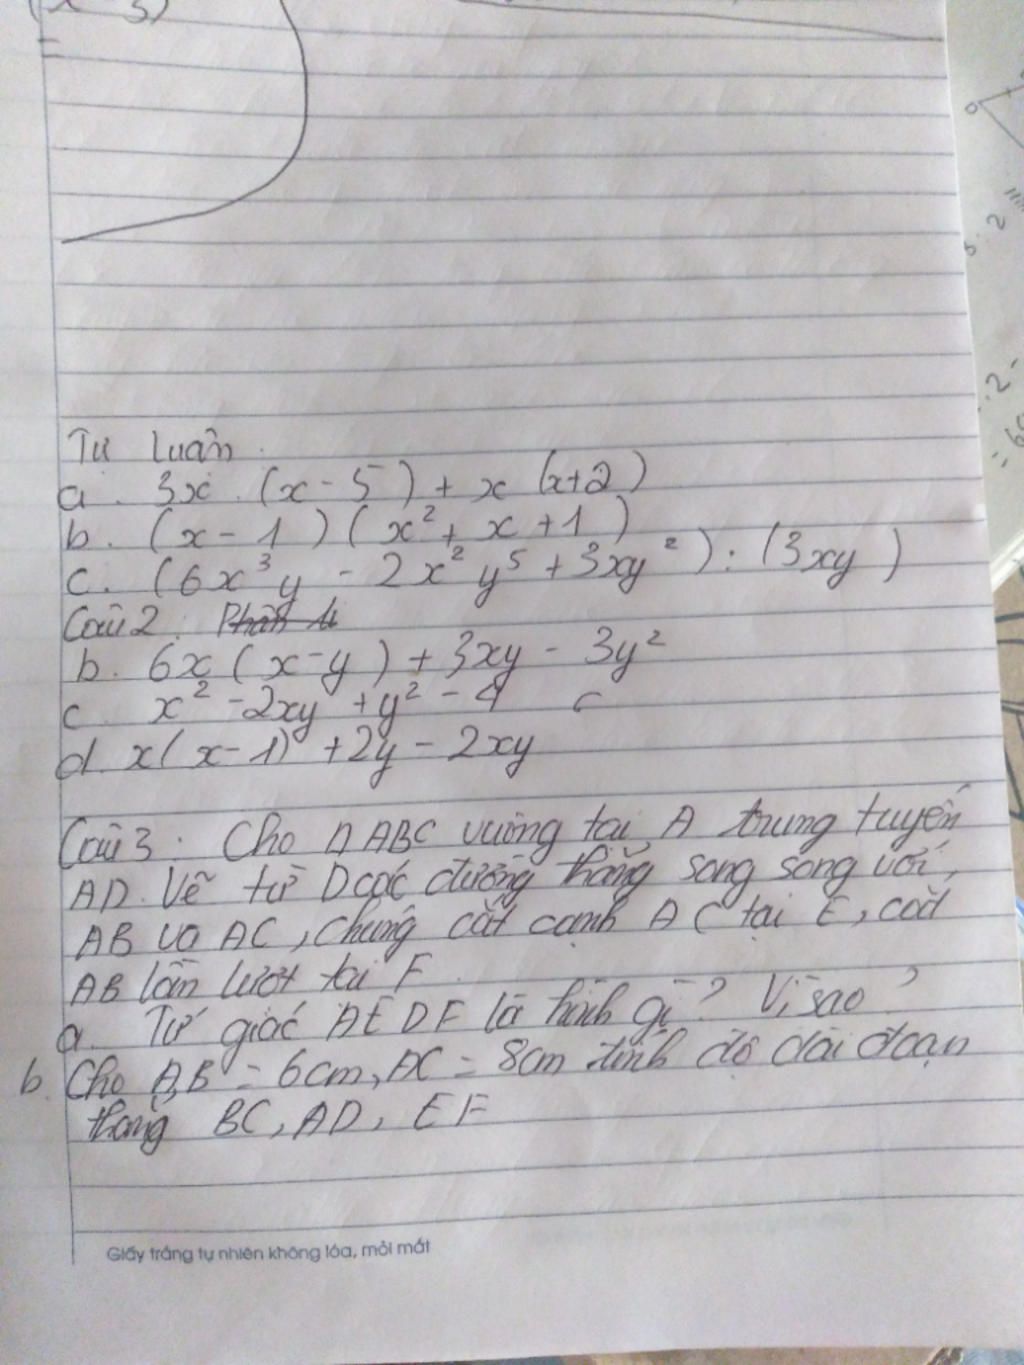 Tự luận
a. 3x. (x - 5) + x (x+2)
b. (x - 1) (x² + x + 1)
c. (6x³y - 2x²y⁵ + 3xy²) : (3xy)
Câu 2:
b. 6x (x - y) + 3xy - 3y²
c. x² - 2xy + y² - 4
d. x(x-1) + 2y - 2xy
Câu 3: Cho ΔABC vuông tại A trung tuyến
AD. Vẽ từ D các đường thẳng song song với,
AB và AC, chúng cắt cạnh AC tại E, cắt
AB lần lượt tại F
a. Tứ giác AEDF là hình gì? Vì sao?
b. Cho AB = 6cm, AC = 8cm tính độ dài đoạn
thẳng BC, AD, EF
Giấy trắng tự nhiên không lóa, mỏi mắt